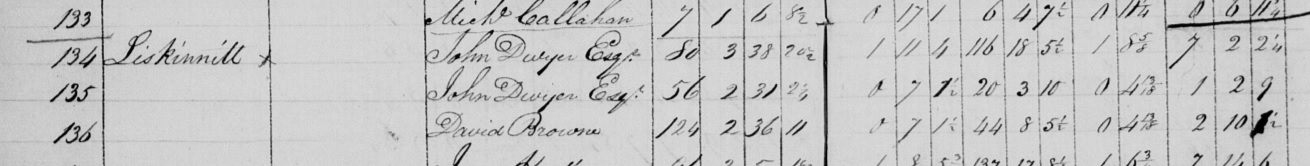 133 Mich.l Callahan 7 1 6 8½ 0 17 1 6 4 7½ 0 11¼ 0 6 11¼
134 Liskinnill x John Dwyer Esqr. 80 3 38 20½ 1 11 4 116 18 5½ 1 8⅝ 7 2 2¼
135 John Dwyer Esqr. 56 2 31 2¼ 0 7 1½ 20 3 10 0 1 2 9
136 David Browne 124 2 36 11 0 7 1½ 44 8 5½ 0 2 10 1½